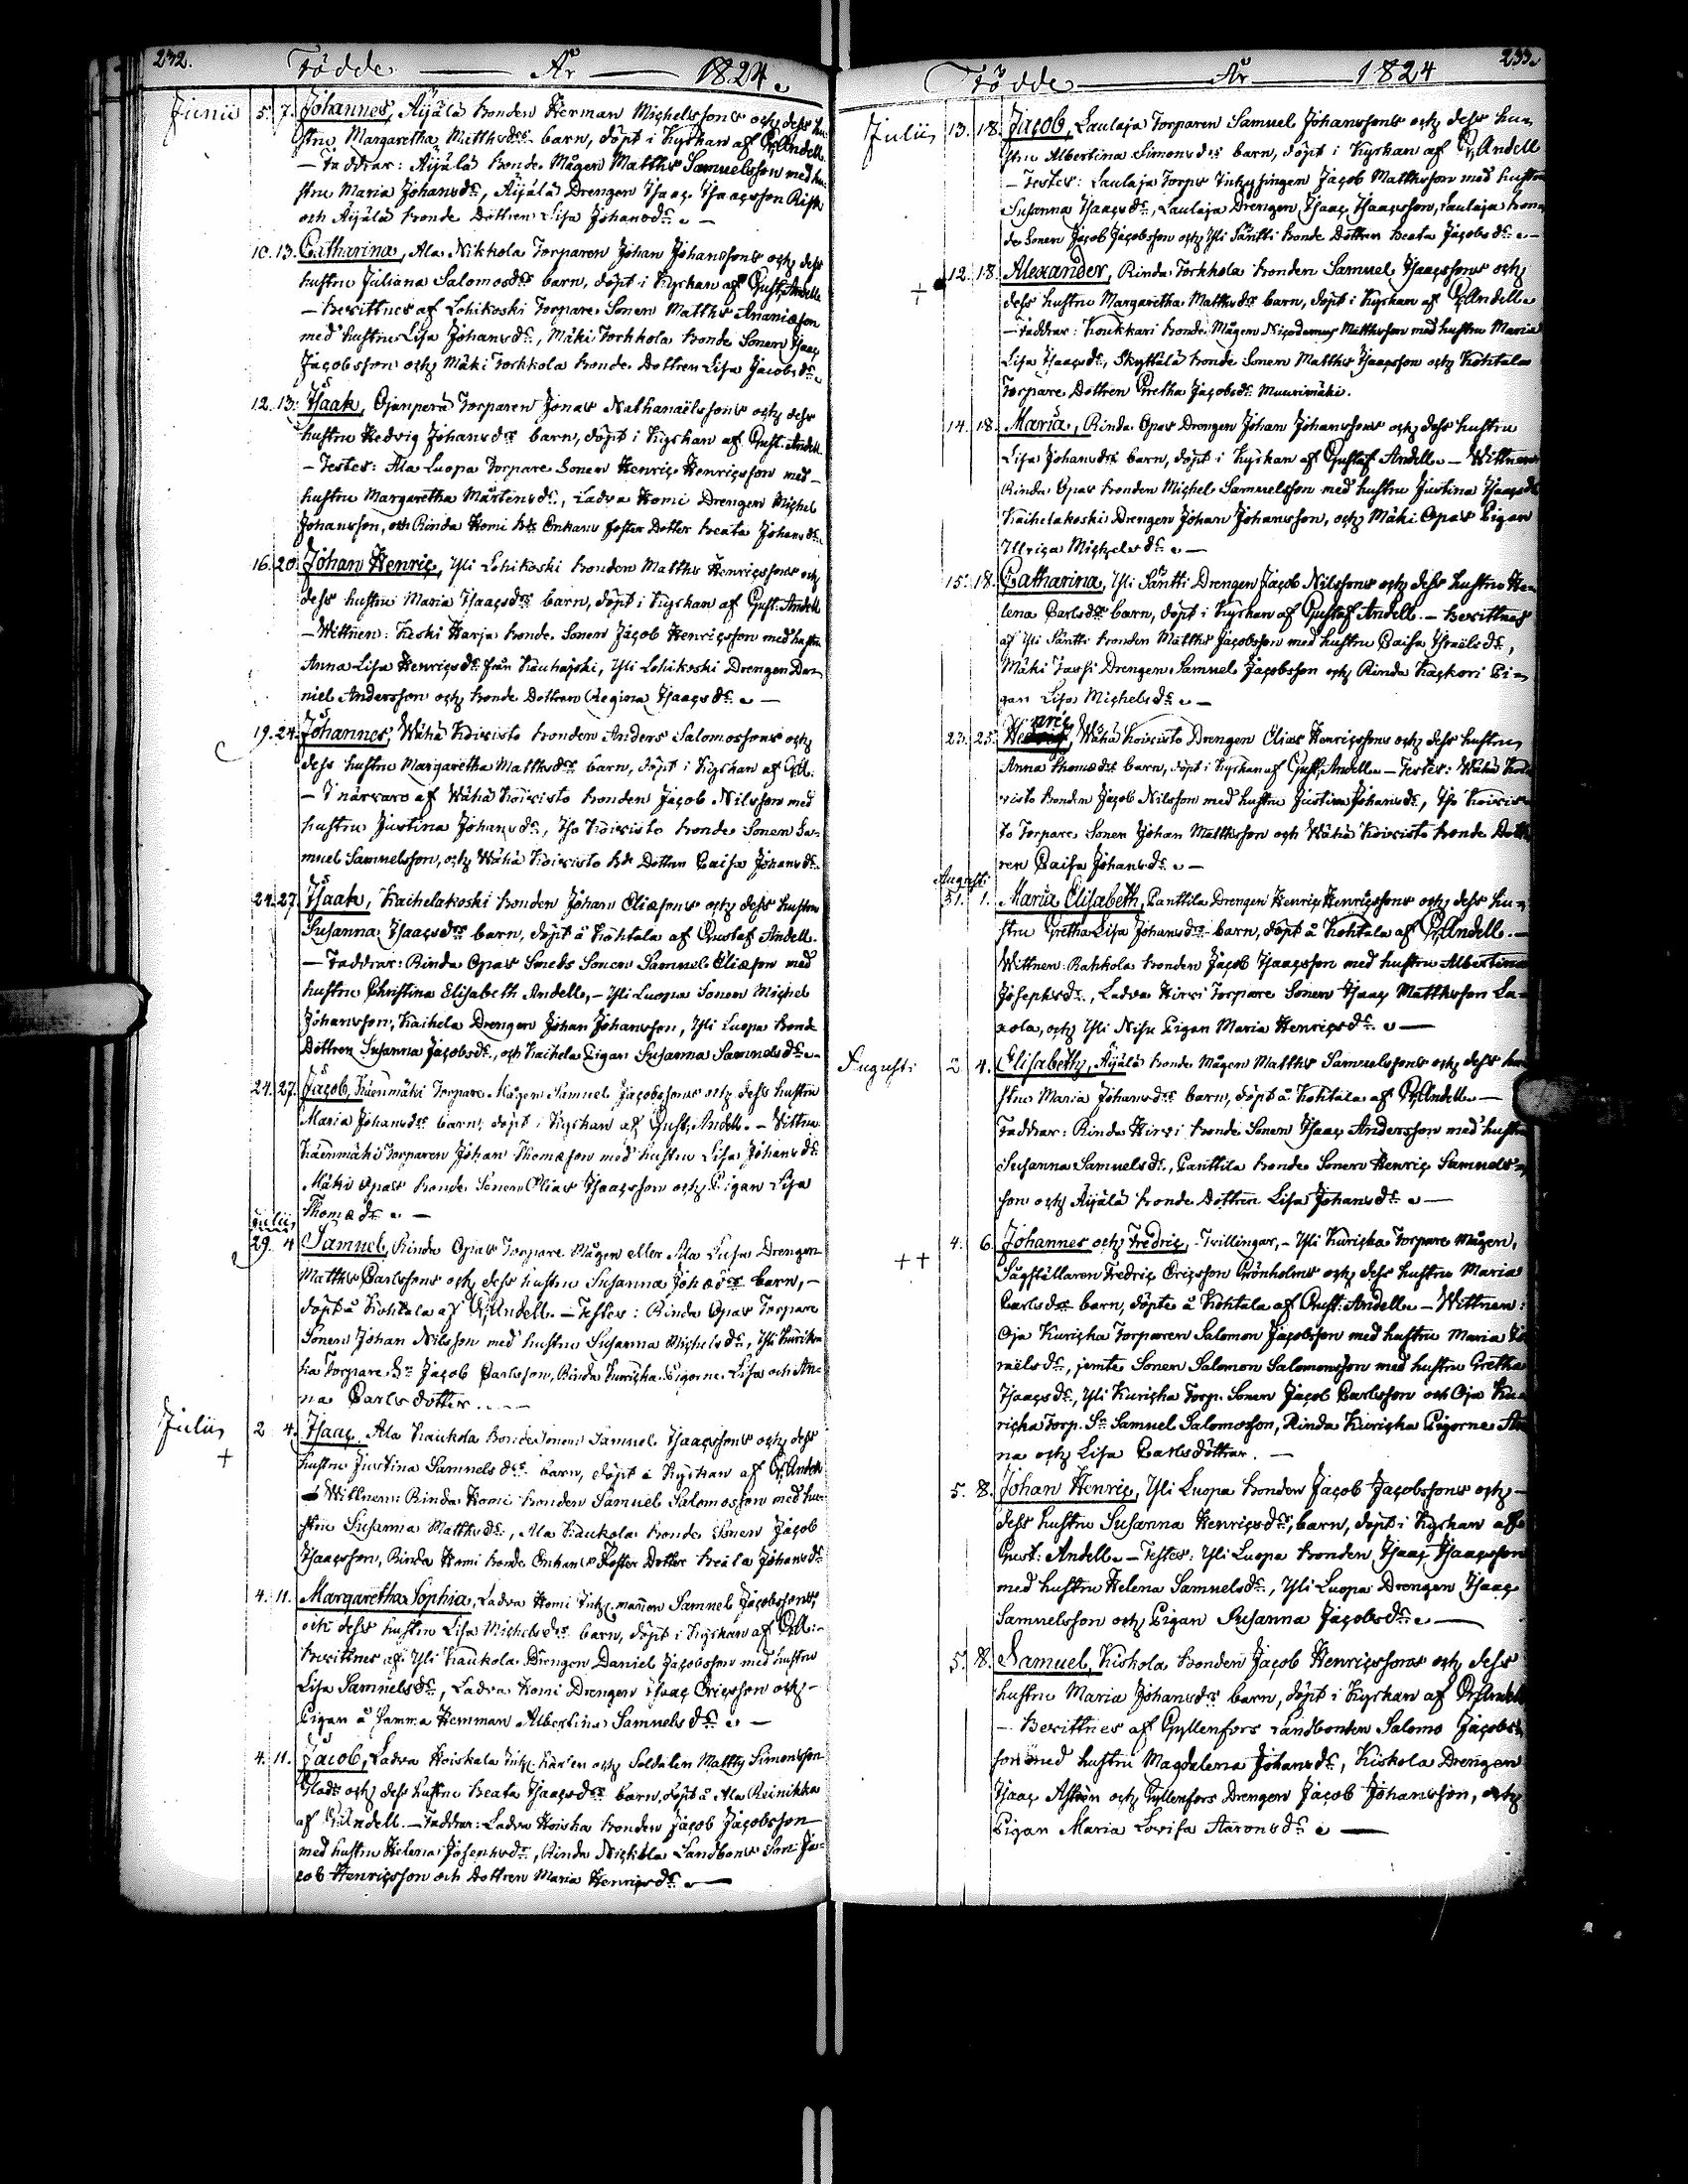 232.
Födde — År — 1824.
Junii 5. 7. Johannes, Äijälä bonden Herman Michelssons och dess hu-
stru Margaretha Matthsdrs barn, döpt i Kyrkan af G. Andell.
— Faddrar: Äijälä bonde Mågen Matths Samuelsson med hu-
stru Maria Johansdr, Äijälä Drengen Isaac Isaacsson
och Äijälä bonde Dottren Lisa Johansdr. —
10. 13. Catharina, Ala Nikkola Torparen Johan Johanssons och dess
hustru Juliana Salomosdrs barn, döpt i Kyrkan af Gust. Andell
— Bevittnes af Lohikoski Torpare Sonen Matths Ananiæson
med hustru Lisa Johansdr, Mäki Torkkola bonde Sonen Isaac
Jacobsson och Mäki Torkkola bonde Dottren Lisa Jacobsdr.
12. 13. Isaak, Ojanperä Torparen Jonas Nathanaëlssons och dess
hustru Hedvig Johansdrs barn, döpt i Kyrkan af Gust. Andell.
— Testes: Ala Luopa Torpare Sonen Henric Henricsson med
hustru Margaretha Mårtensdr, Ladva Komi Drengen Michel
Johansson, och Rinda Komi Bde Enkans foster Dotter Beata Johansdr.
16. 20. Johan Henric, Yli Lohikoski bonden Matths Henricssons och
dess hustru Maria Isaacsdrs barn, döpt i Kyrkan af Gust. Andell
— Wittnen: Keski Harja bonde Sonen Jacob Henricsson med hustru
Anna Lisa Henricsdr från Kauhajoki, Yli Lohikoski Drengen Da-
niel Andersson och bonde Dottren Regina Isaacsdr. —
19. 24. Johannes, Wähä Koivisto bonden Anders Salomossons och
dess hustru Margaretha Matthsdrs barn, döpt i Kyrkan af
— I närvaro af Wähä Koivisto bonden Jacob Nilsson med
hustru Justina Johansdr, Iso Koivisto bonde Sonen Sa-
muel Samuelsson, och Wähä Koivisto Bde Dottren Caisa Johansdr.
24. 27. Isaak, Kaihelakoski bonden Johan Eliæsons och dess hustru
Susanna Isaacsdrs barn, döpt å Kohtala af Gustaf Andell.
— Faddrar: Rinda Opas Smeds Sonen Samuel Eliæson med
hustru Christina Elisabeth Andell, — Yli Luopa Sonen Michel
Johansson, Kaihela Drengen Johan Johansson, Yli Luopa Bonde
Dottren Susanna Jacobsdr, och Kaihela Pigan Susanna Samuelsdr. —
24. 27. Jacob, Käenmäki Torpare Mågen Samuel Jacobssons och dess hustru
Maria Johansdrs barn, döpt i Kyrkan af Gust. Andell. — Wittna
Käenmäki Torparen Johan Thomæson med hustru Lisa Johansdr
Mäki Opas bonde Sonen Elias Isaacsson och Pigan Lisa
Thomædr. —
Julii
29. 4 Samuel, Rinda Opas Torpare Mågen eller Ala Drengen
Matths Carlssons och dess hustru Susanna Joh.drs barn, —
döpt å Kohtala af G. Andell. — Testes: Rinda Opas Torpare
Sonen Johan Nilsson med hustru Susanna Michelsdr, Yli Kurik-
ka Torpare Sn Jacob Carlsson, Rinda Kuricka Pigorne Lisa och An-
na Carlsdotter. —
Julii 2 4. Isaac, Ala Kaukola Bonde Sonen Samuel Isaacssons och dess
+ hustru Justina Samuelsdrs barn, döpt i Kyrkan af G. Andell
— Wittnen: Rinda Komi bonden Samuel Salomosson med hu-
stru Susanna Matthsdr, Ala Kaukola bonde Sonen Jacob
Isaacsson, Rinda Komi bonde Enkans Foster Dotter Beata Johansdr
4. 11. Margaretha Sophia, Ladva Komi Inh. mannen Samuel Jacobssons,
och dess hustru Lisa Michelsdrs barn, döpt i Kyrkan af
Bevittnes af Yli Kaukola Drengen Daniel Jacobsson med hustru
Lisa Samuelsdr, Ladva Komi Drengen Isaac Ericsson och —
Pigan å samma Hemman Albertina Samuelsdr. —
4. 11. Jacob, Ladva Koiskala Inh. Karlen och Soldaten Matths Simonsson
Glads och dess hustru Beata Isaacsdrs barn, döpt å Ala Reinikka
af G. Andell. — Faddrar: Ladva bonden Jacob Jacobsson
med hustru Helena Josephsdr, Rinda Landbons Son Ja-
cob Henricsson och Dottren Maria Henricsdr. —
233.
Födde — År — 1824
Julii 13. 18. Jacob, Laulaja Torparen Samuel Johanssons och dess hu-
stru Albertina Simonsdrs barn, döpt i Kyrkan af G. Andell
— Testes: Laulaja Torps Inhysingen Jacob Matthsson med hustru
Susanna Isaacsdr, Laulaja Drengen Isaac Isaacsson, Laulaja bon-
de Sonen Jacob Jacobsson och Yli Säntti bonde Dottren Beata Jacobsdr. —
+ 12. 18. Alexander, Rinda Torkkola bonden Samuel Isaacssons och
dess hustru Margaretha Matthsdrs barn, döpt i Kyrkan af G. Andell.
— Faddrar: Koukkari bonde Mågen Nicodemus Matthsson med hustru Maria
Lisa Isaacsdr, Skyttälä bonde Sonen Matths Isaacsson och Kohtala
Torpare Dottren Gretha Jacobsdr Muurimäki.
14. 18. Maria, Rinda Opas Drengen Johan Johanssons och dess hustru
Lisa Johansdrs barn, döpt i Kyrkan af Gustaf Andell. — Wittnen:
Rinda Opas bonden Michel Samuelsson med hustru Justina Isaacsdr
Kaihelakoski Drengen Johan Johansson, och Mäki Opas Pigan
Ullrica Michelsdr. —
15. 18. Catharina, Yli Säntti Drengen Jacob Nilssons och dess hustru He-
lena Carlsdrs barn, döpt i Kyrkan af Gustaf Andell. — Bevittnes
af Yli Säntti bonden Matths Jacobsson med hustru Caisa Israëlsdr,
Mäki Jassi Drengen Samuel Jacobsson och Rinda Kackori Pi-
gan Lisa Michelsdr. —
23. 25. Henric, Wähä Koivisto Drengen Elias Henricssons och dess hustru
Anna Thomædrs barn, döpt i Kyrkan af Gust. Andell. — Testes: Wähä Koi-
visto bonden Jacob Nilsson med hustru Justina Johansdr, Iso Koivis-
to Torpare Sonen Johan Matthsson och Wähä Koivisto bonde Dott-
ren Caisa Johansdr. —
Augusti
31. 1. Maria Elisabeth, Panttila Drengen Henric Henricssons och dess hu-
stru Gretha Lisa Johansdrs barn, döpt å Kohtala af G. Andell. —
Wittnen: Rahkola bonden Jacob Isaacsson med hustru Albertina
Josephsdr, Ladva Hirvi Torpare Sonen Isaac Matthsson La-
xola, och Yli Nisu Pigan Maria Henricsdr. —
Augusti 2. 4. Elisabeth, Äijälä bonde Mågen Matths Samuelssons och dess hu-
stru Maria Johansdrs barn, döpt å Kohtala af G. Andell. —
Faddrar: Rinda Hirvi bonde Sonen Isaac Andersson med hustru
Susanna Samuelsdr, Panttila bonde Sonen Henric Samuels-
son och Äijälä bonde Dottren Lisa Johansdr. —
++ 4. 6. Johannes och Fredric, - Tvillingar, — Yli Kuricka Torpare Mågen,
Sågställaren Fredric Ericsson Grönholms och dess hustru Maria
Carlsdrs barn, döpte å Kohtala af Gust: Andell. — Wittnen:
Oja Kuricka Torparen Salomon Jacobsson med hustru Maria Is-
raëlsdr, jemte Sonen Salomon Salomonsson med hustru Gretha
Isaacsdr, Yli Kuricka Torp. Sonen Jacob Carlsson och Oja Ku-
ricka Torp. Sn Samuel Salomosson, Rinda Kuricka Pigorne An-
na och Lisa Carlsdöttrar. —
5. 8. Johan Henric, Yli Luopa bonden Jacob Jacobssons och —
dess hustru Susanna Henricsdrs, barn, döpt i Kyrkan af
Gust: Andell. — Testes: Yli Luopa bonden Isaac Isaacsson
med hustru Helena Samuelsdr, Yli Luopa Drengen Isaac
Samuelsson och Pigan Susanna Jacobsdr. —
5. 8. Samuel, Kiskola bonden Jacob Henricssons och dess
hustru Maria Johansdrs barn, döpt i Kyrkan af G. Andell
— Bevittnes af Gyllenfors Landbonden Salomo Jacobs-
son med hustru Magdalena Johansdr, Kiskola Drengen
Isaac Aström och Gyllenfors Drengen Jacob Johansson, och
Pigan Maria Lovisa Aaronsdr. —